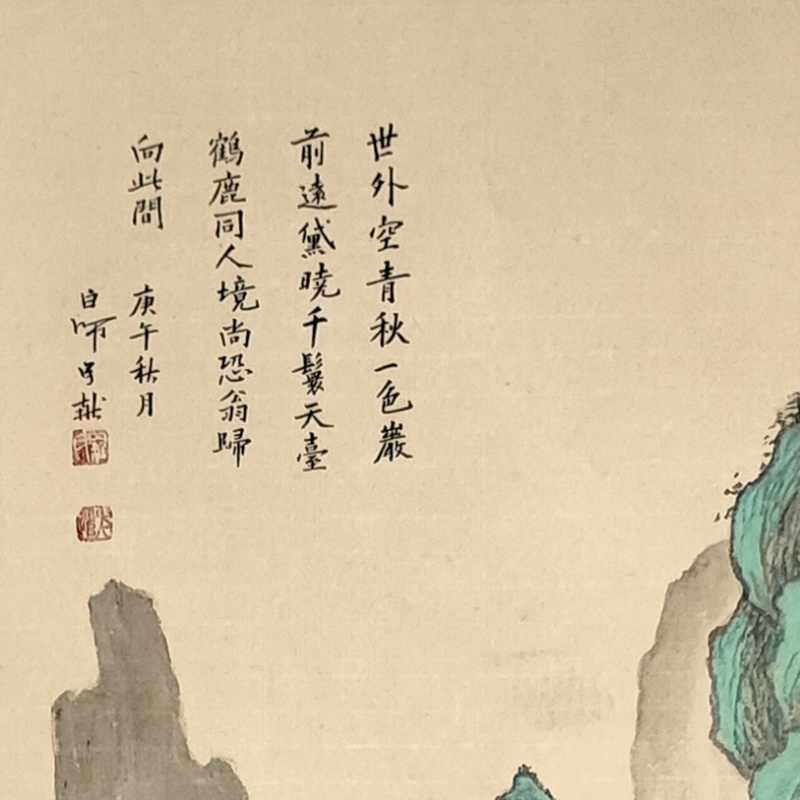 世外空青秋一色巖
前遠黛曉千鬟天臺
鶴鹿同人境尚恐翁歸
向此間 庚午秋月